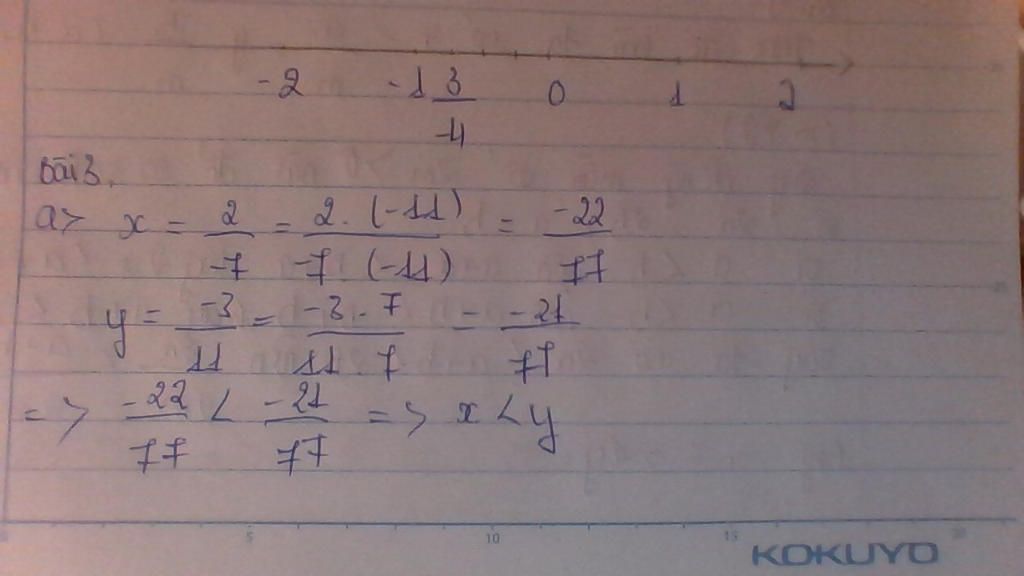 -2 -1 3/-4 0 1 2
Bài 3.
a> x = 2/-7 = 2. (-11)/-7 (-11) = -22/77
y = -3/11 = -3. 7/11. 7 = -21/77
=> -22/77 < -21/77 => x < y
5 10 15 20
KOKUYO